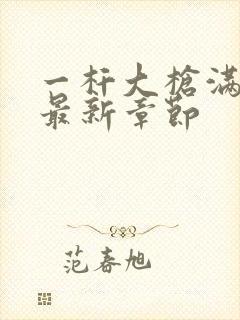 一杆大槍滿
最新章節
范春旭